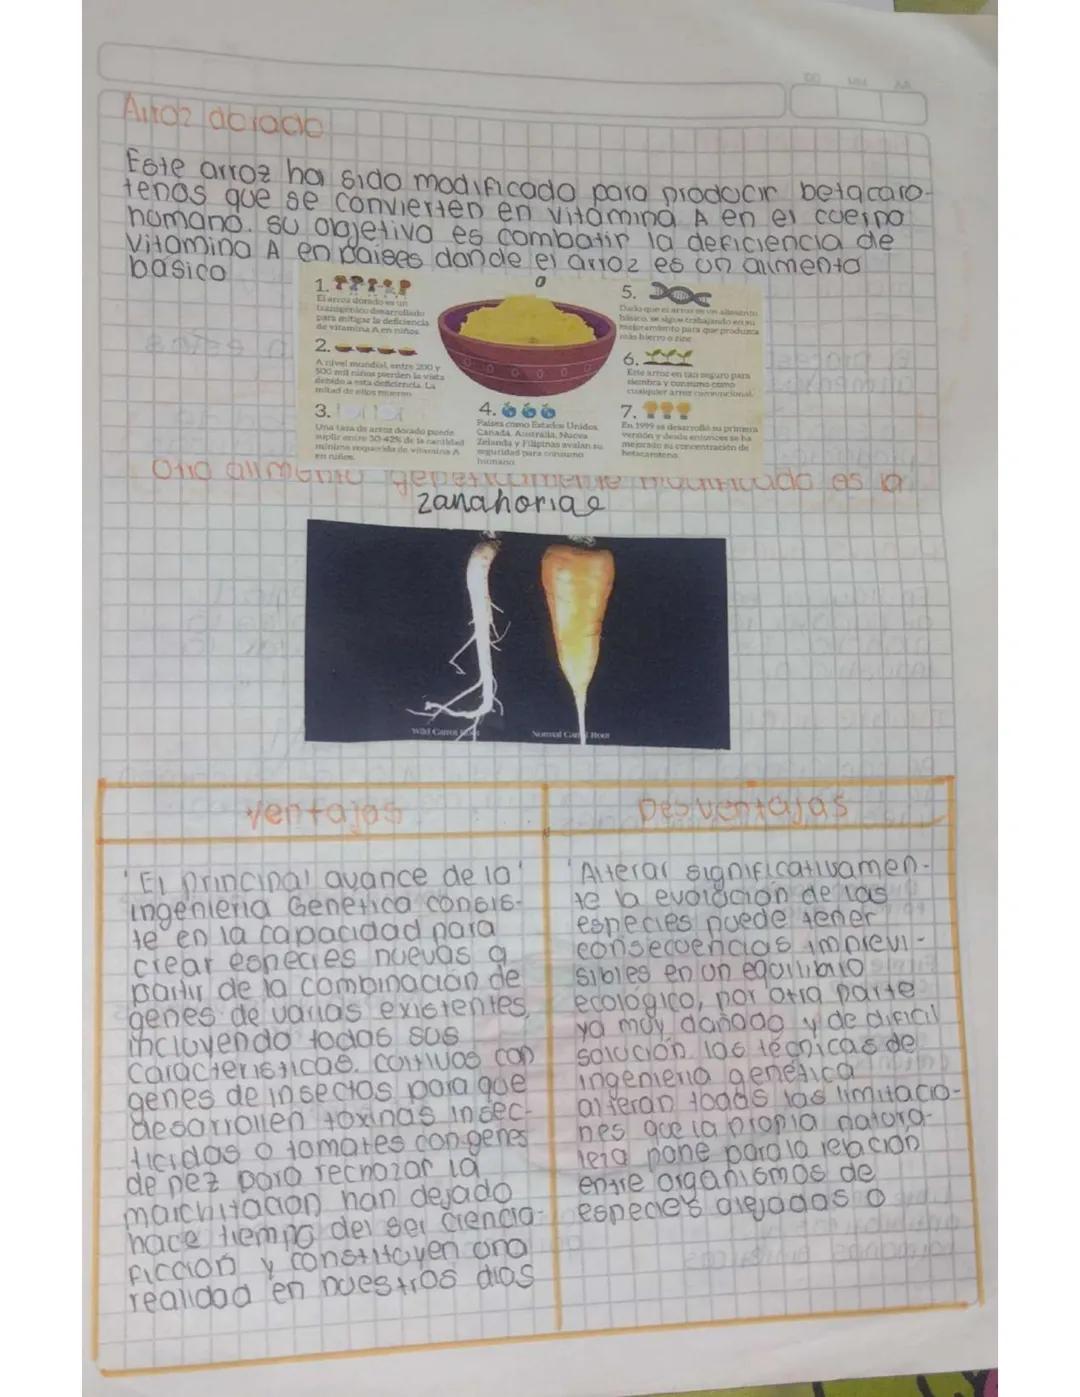 DD MM AA
Arroz dorado
Este arroz ha sido modificado para producir betacaro-
tenos que se convierten en vitamina A en el cuerpo
humano. su objetivo es combatir la deficiencia de
vitamina A en paises donde el arroz es un alimento
básico
1.
El arroz dorado es un
transgénico desarrollado
para mitigar la deficiencia
de vitamina A en niños
2.
A nivel mundial, entre 200 y
500 mil niños pierden la vista
debido a esta deficiencia. La
mitad de ellos mueren
3.
Una taza de arroz dorado puede
suplir entre 30-42% de la cantidad
mínima requerida de vitamina A
en niños.
4.
Países como Estados Unidos,
Canadá, Australia, Nueva
Zelanda y Filipinas avalan su
seguridad para consumo
humano
5.
Dado que el arroz es un alimento
básico, se sigue trabajando en su
mejoramiento para que produzca
más hierro o zinc
6.
Este arroz es tan seguro para
siembra y consumo como
cualquier arroz convencional.
7.
En 1999 se desarrolló su primera
versión y desde entonces se ha
mejorado su concentración de
betacaroteno.
Otro alimento genéticamente modificado es la
zanahoria
Wild Carrot Root
Normal Carrot Root
Ventajas
El principal avance de la
ingenieria Genetica consis-
te en la capacidad para
crear especies nuevas a
partir de la combinación de
genes de varias existentes,
incluyendo todas sus
caracteristicas. cultivos con
genes de insectos para que
desarrollen toxinas insec-
ticidas o tomates con genes
de pez para rechazar la
marchitacion han dejado
hace tiempo del ser ciencia
ficcion y constituyen una
realidad en nuestros dias
Desventajas
Alterar significativamen-
te la evolución de las
especies puede tener
consecuencias imprevi-
sibles en un equilibrio
ecológico, por otra parte
ya muy dañado y de dificil
solución. las técnicas de
ingenieria genética
alteran todas las limitacio-
nes que la propia natura-
leza pone para la relación
entre organismos de
especies alejadas o